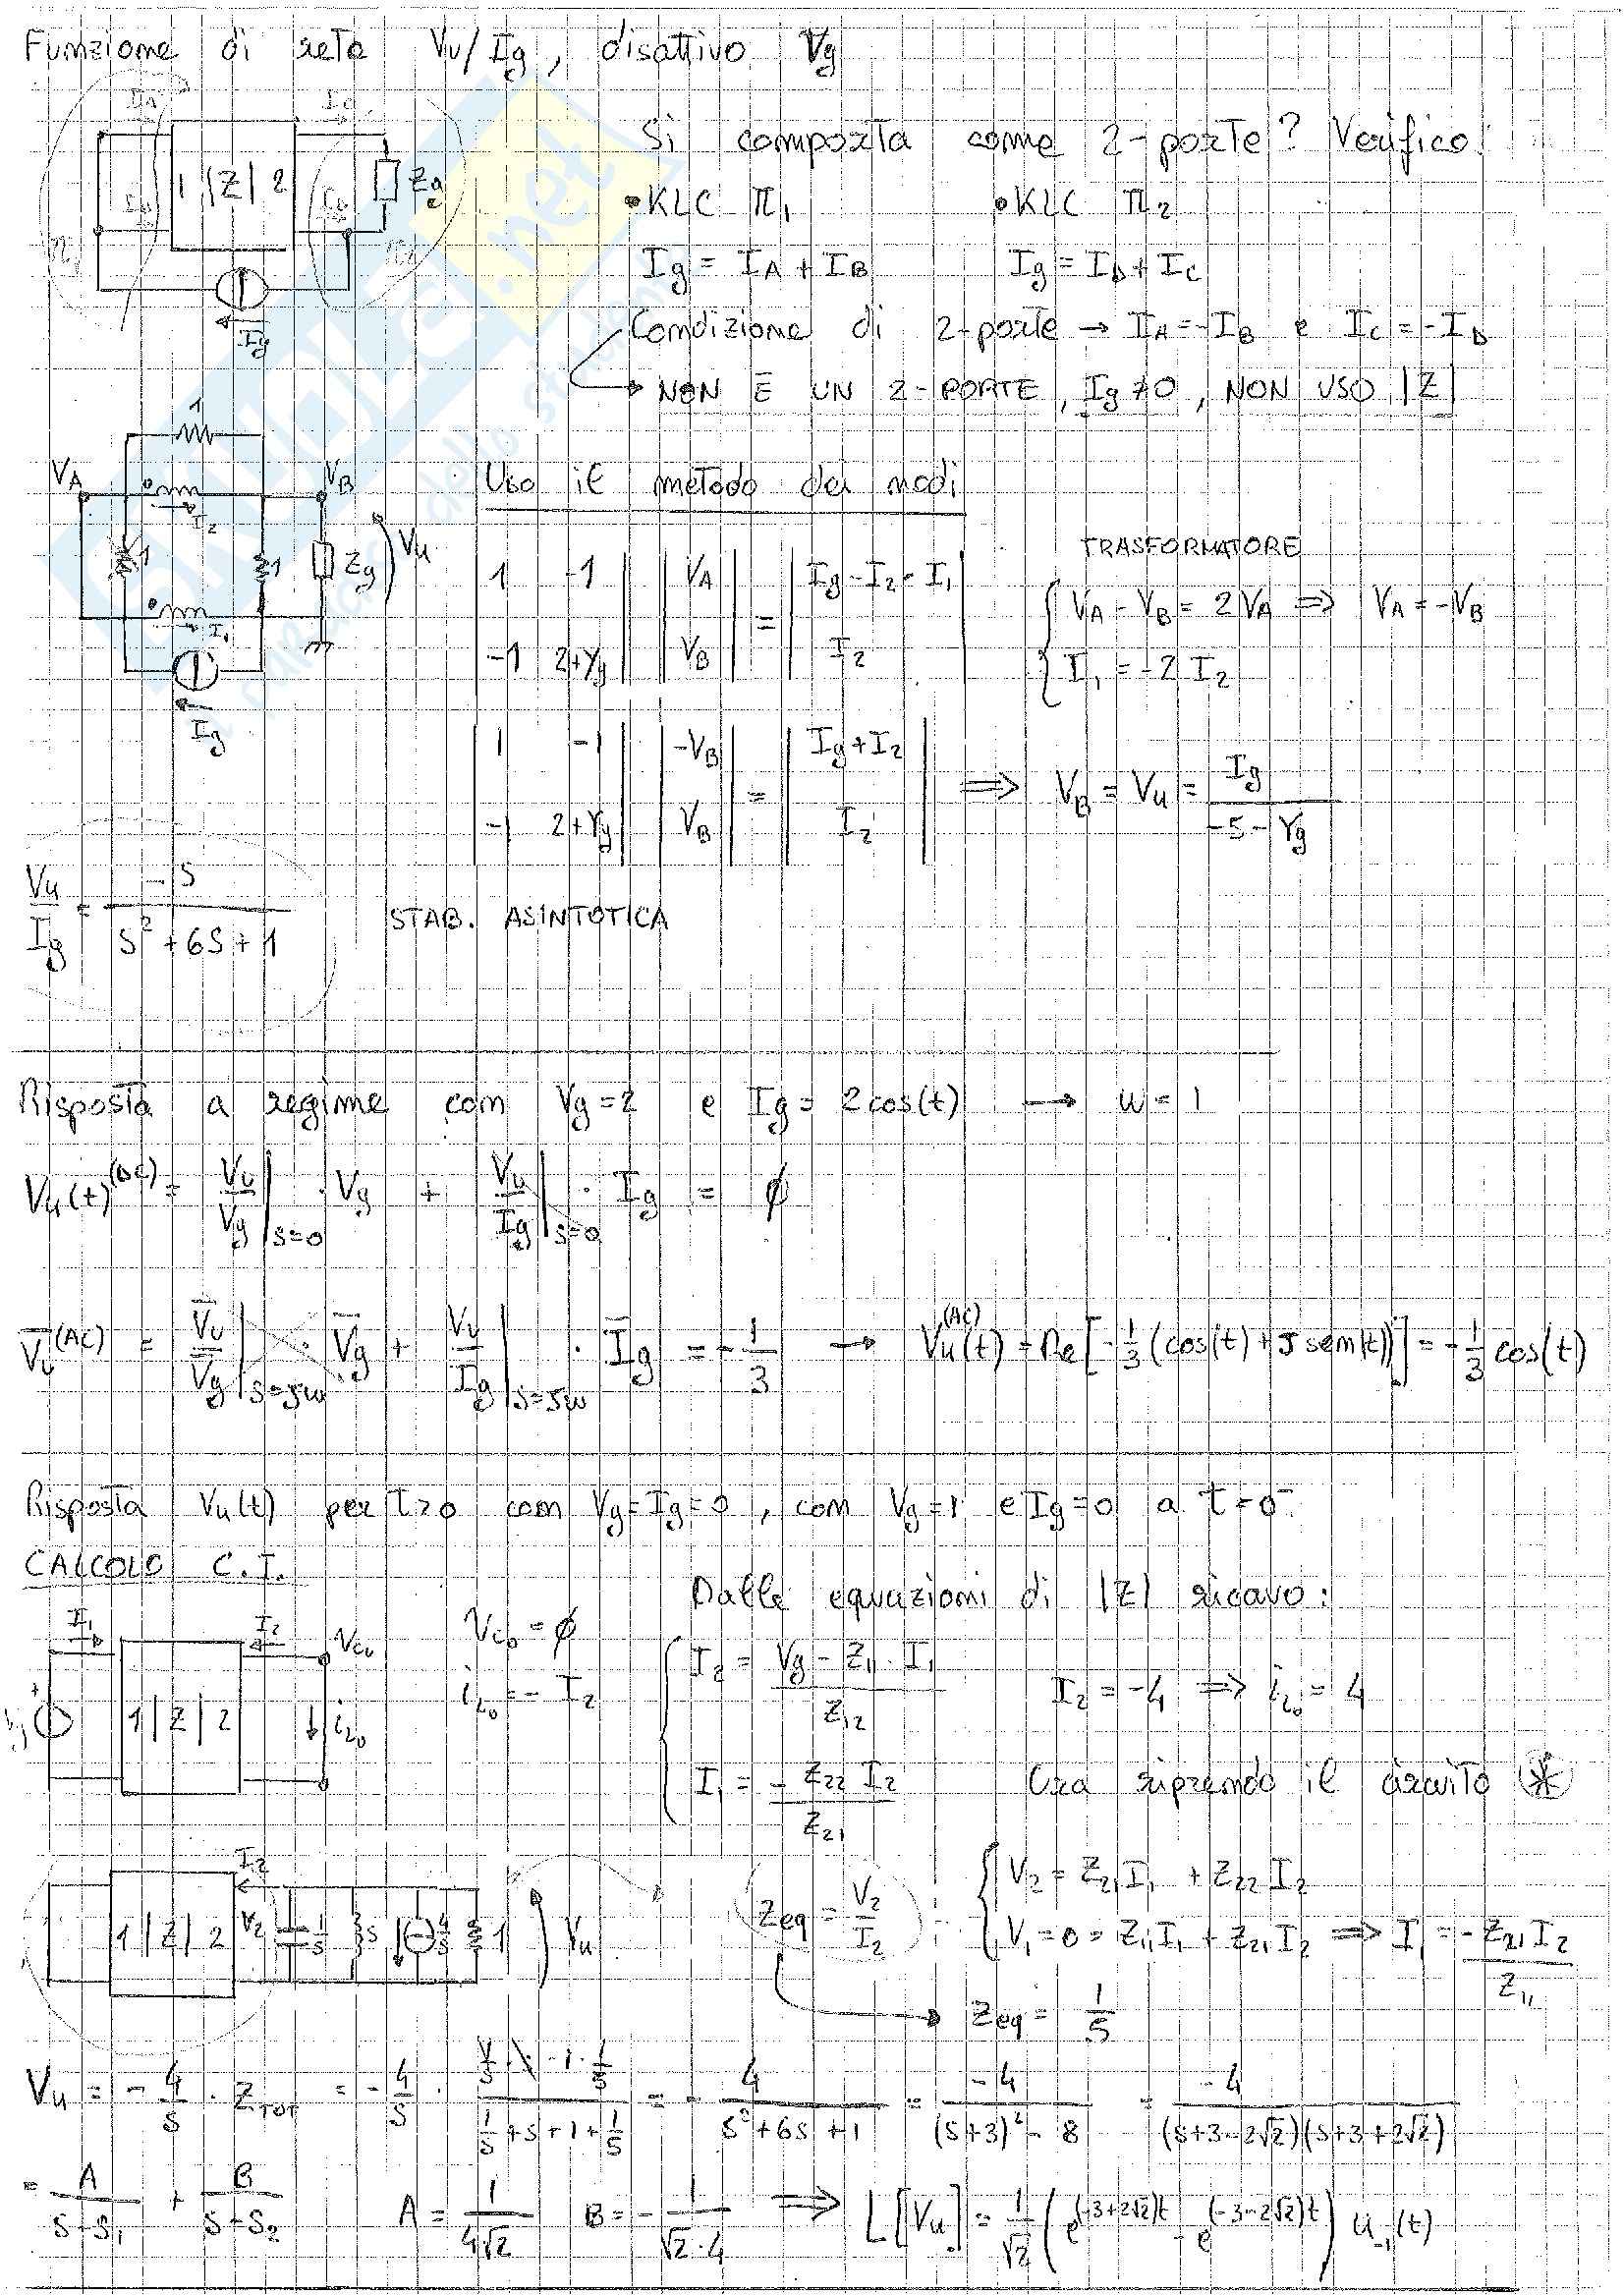 Funzione di rete Vu/Ig, disattivo Vg
Si comporta come 2-porte? Verifico:
1 |Z| 2 Zg
• KLC π1 • KLC π2
Ig = IA + IB Ig = ID + IC
Ig
Condizione di 2-porte → IA = -IB e IC = -ID
NON È UN 2-PORTE, Ig ≠ 0, NON USO |Z|
1
VA VB
Uso il metodo dei nodi
I2
1 1 Zg Vu
I1
Ig
|1 -1| |VA| = |Ig - I2 - I1|
|-1 2+Yg| |VB| = |I2|
TRASFORMATORE
{ VA - VB = 2VA ⇒ VA = -VB
{ I1 = -2 I2
|1 -1| |-VB| = |Ig + I2|
|-1 2+Yg| |VB| = |I2|
⇒ VB = Vu = Ig / (-5 - Yg)
Vu/Ig = -S / (S² + 6S + 1) STAB. ASINTOTICA
Risposta a regime con Vg = 2 e Ig = 2cos(t) → ω = 1
Vu(t)^(DC) = Vu/Vg |s=0 · Vg + Vu/Ig |s=0 · Ig = ∅
Vu^(AC) = Vu/Vg |s=jω · Vg + Vu/Ig |s=jω · Ig = -1/3 → Vu(t)^(AC) = Re[-1/3 (cos(t) + J sen(t))] = -1/3 cos(t)
Risposta Vu(t) per t>0 con Vg = Ig = 0, con Vg = 1 e Ig = 0 a t = 0⁻
CALCOLO C.I.
Dalle equazioni di |Z| ricavo:
I1 I2 Vc0
1 |Z| 2 iL0
Vc0 = ∅
iL0 = - I2
{ I2 = (Vg - Z11 · I1) / Z12
{ I1 = - Z22 I2 / Z21
I2 = -4 ⇒ iL0 = 4
Ora riprendo il circuito *
I2
1 |Z| 2 V2 1/s s 4/s 1 Vu
Zeq = V2/I2 : { V2 = Z21 I1 + Z22 I2
{ V1 = 0 = Z11 I1 + Z21 I2 ⇒ I1 = - Z21 I2 / Z11
Zeq = 1/5
Vu = - 4/s · ZTOT = - 4/s · = - 4 / (s² + 6s + 1) = -4 / ((s+3)² - 8) = -4 / ((s+3-2√2)(s+3+2√2))
= A/(s+s1) + B/(s+s2) A = 1/(4√2) B = - 1/(√2·4) ⇒ L[Vu] = 1/√2 (e^(-3+2√2)t - e^(-3-2√2)t) u-1(t)